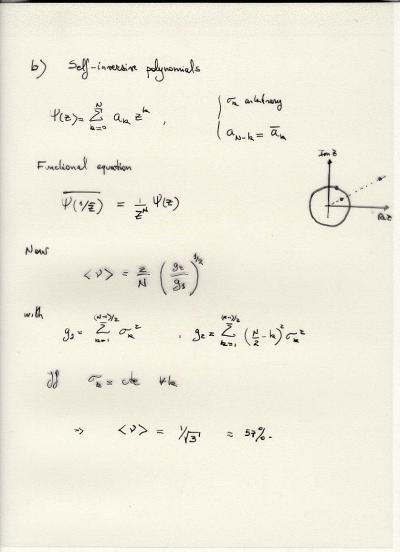 b) Self-inversive polynomials
Ψ(z) = Σ_{k=0}^{N} a_k z^k , { σ_k arbitrary
a_{N-k} = \overline{a}_k
Functional equation
Im z
\overline{Ψ(1/\overline{z})} = 1/z^N Ψ(z)
Re z
Now
<ν> = 2/N (g_2/g_1)^{1/2}
with
g_1 = Σ_{k=1}^{(N-1)/2} σ_k^2 , g_2 = Σ_{k=1}^{(N-1)/2} (N/2 - k)^2 σ_k^2
If σ_k = cte ∀k
⇒ <ν> = 1/√3 ≈ 57%.